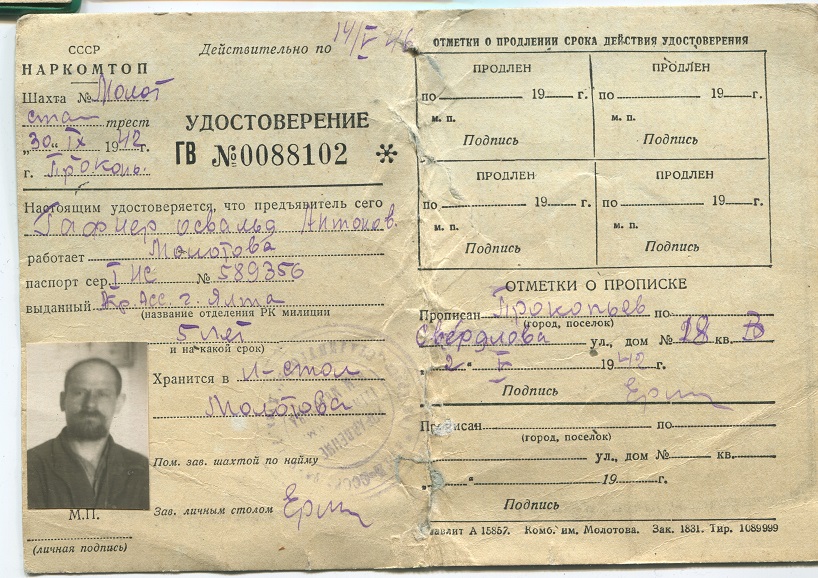 СССР
НАРКОМТОП
Шахта № Молот
трест
„30“ IX 1942г.
г. Прокоп.
Действительно по 14/V 46
УДОСТОВЕРЕНИЕ
ГВ №0088102 *
Настоящим удостоверяется, что предъявитель сего
Гафнер Освальд Антонов.
работает Молотова
паспорт сер. I ИС № 589356
выданный г. Ялта
(название отделения РК милиции
5 лет
и на какой срок)
Хранится в
Молотова
Пом. зав. шахтой по найму
Зав. личным столом
М.П.
(личная подпись)
ОТМЕТКИ О ПРОДЛЕНИИ СРОКА ДЕЙСТВИЯ УДОСТОВЕРЕНИЯ
ПРОДЛЕН ПРОДЛЕН
по 19 г. по 19 г.
м. п. м. п.
Подпись Подпись
ПРОДЛЕН ПРОДЛЕН
по 19 г. по 19 г.
м. п. м. п.
Подпись Подпись
ОТМЕТКИ О ПРОПИСКЕ
Прописан Прокопьев по
(город, поселок)
Свердлова ул., дом № 28 кв. В
„2“ V 1942 г.
Подпись
Прописан по
(город, поселок)
ул., дом № кв.
„ “ 19 г.
Подпись
А 15857. Комб. им. Молотова. Зак. 1831. Тир. 1089999